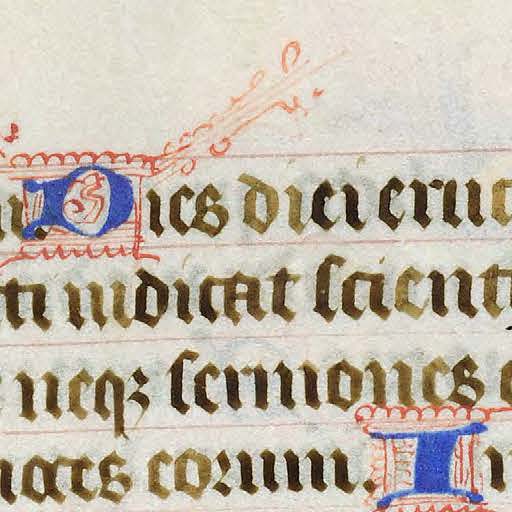 Dies diei eruc
ti indicat scienti
neqz sermones
corum. I